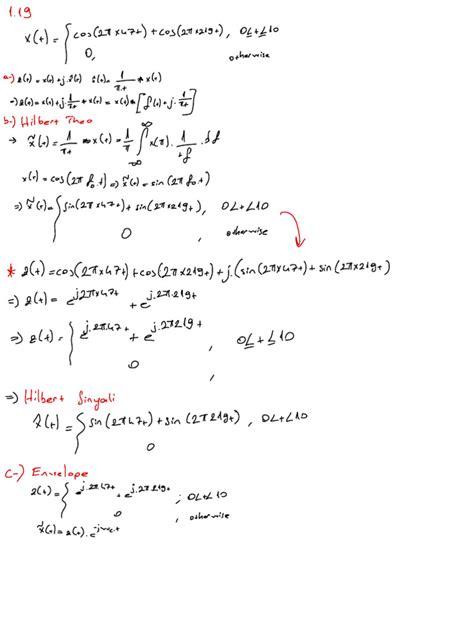 1.19
x(t) = { cos(2π×47t) + cos(2π×219t), 0≤t≤10
0, otherwise
a-) z(t) = x(t) + j.x̂(t) x̂(t) = 1/πt * x(t)
=) z(t) = x(t) + j. 1/πt * x(t) = x(t) * [δ(t) + j. 1/πt]
b-) Hilbert Theo
→ x̃(t) = 1/πt * x(t) = 1/π ∫ x(π). 1/
x(t) = cos(2π f₀.t) =) x̃(t) = sin(2π f₀.t)
=) x̃(t) = { sin(2π×47t) + sin(2π×219t), 0≤t≤10
0 , otherwise
* z(t) = cos(2π×47t) + cos(2π×219t) + j.(sin(2π×47t) + sin(2π×219t)
=) z(t) = e^j2π×47t + e^j.2π.219t
=) z(t) = { e^j.2π47t + e^j.2π219t , 0≤t≤10
0 ,
=) Hilbert Sinyali
x̂(t) = { sin(2π47t) + sin(2π219t), 0≤t≤10
0
c-) Envelope
z(t) = { e^j.2π.47t + e^j.2π.219t ; 0≤t≤10
0 , otherwise
x̃(t) = z(t). e^-jwc.t